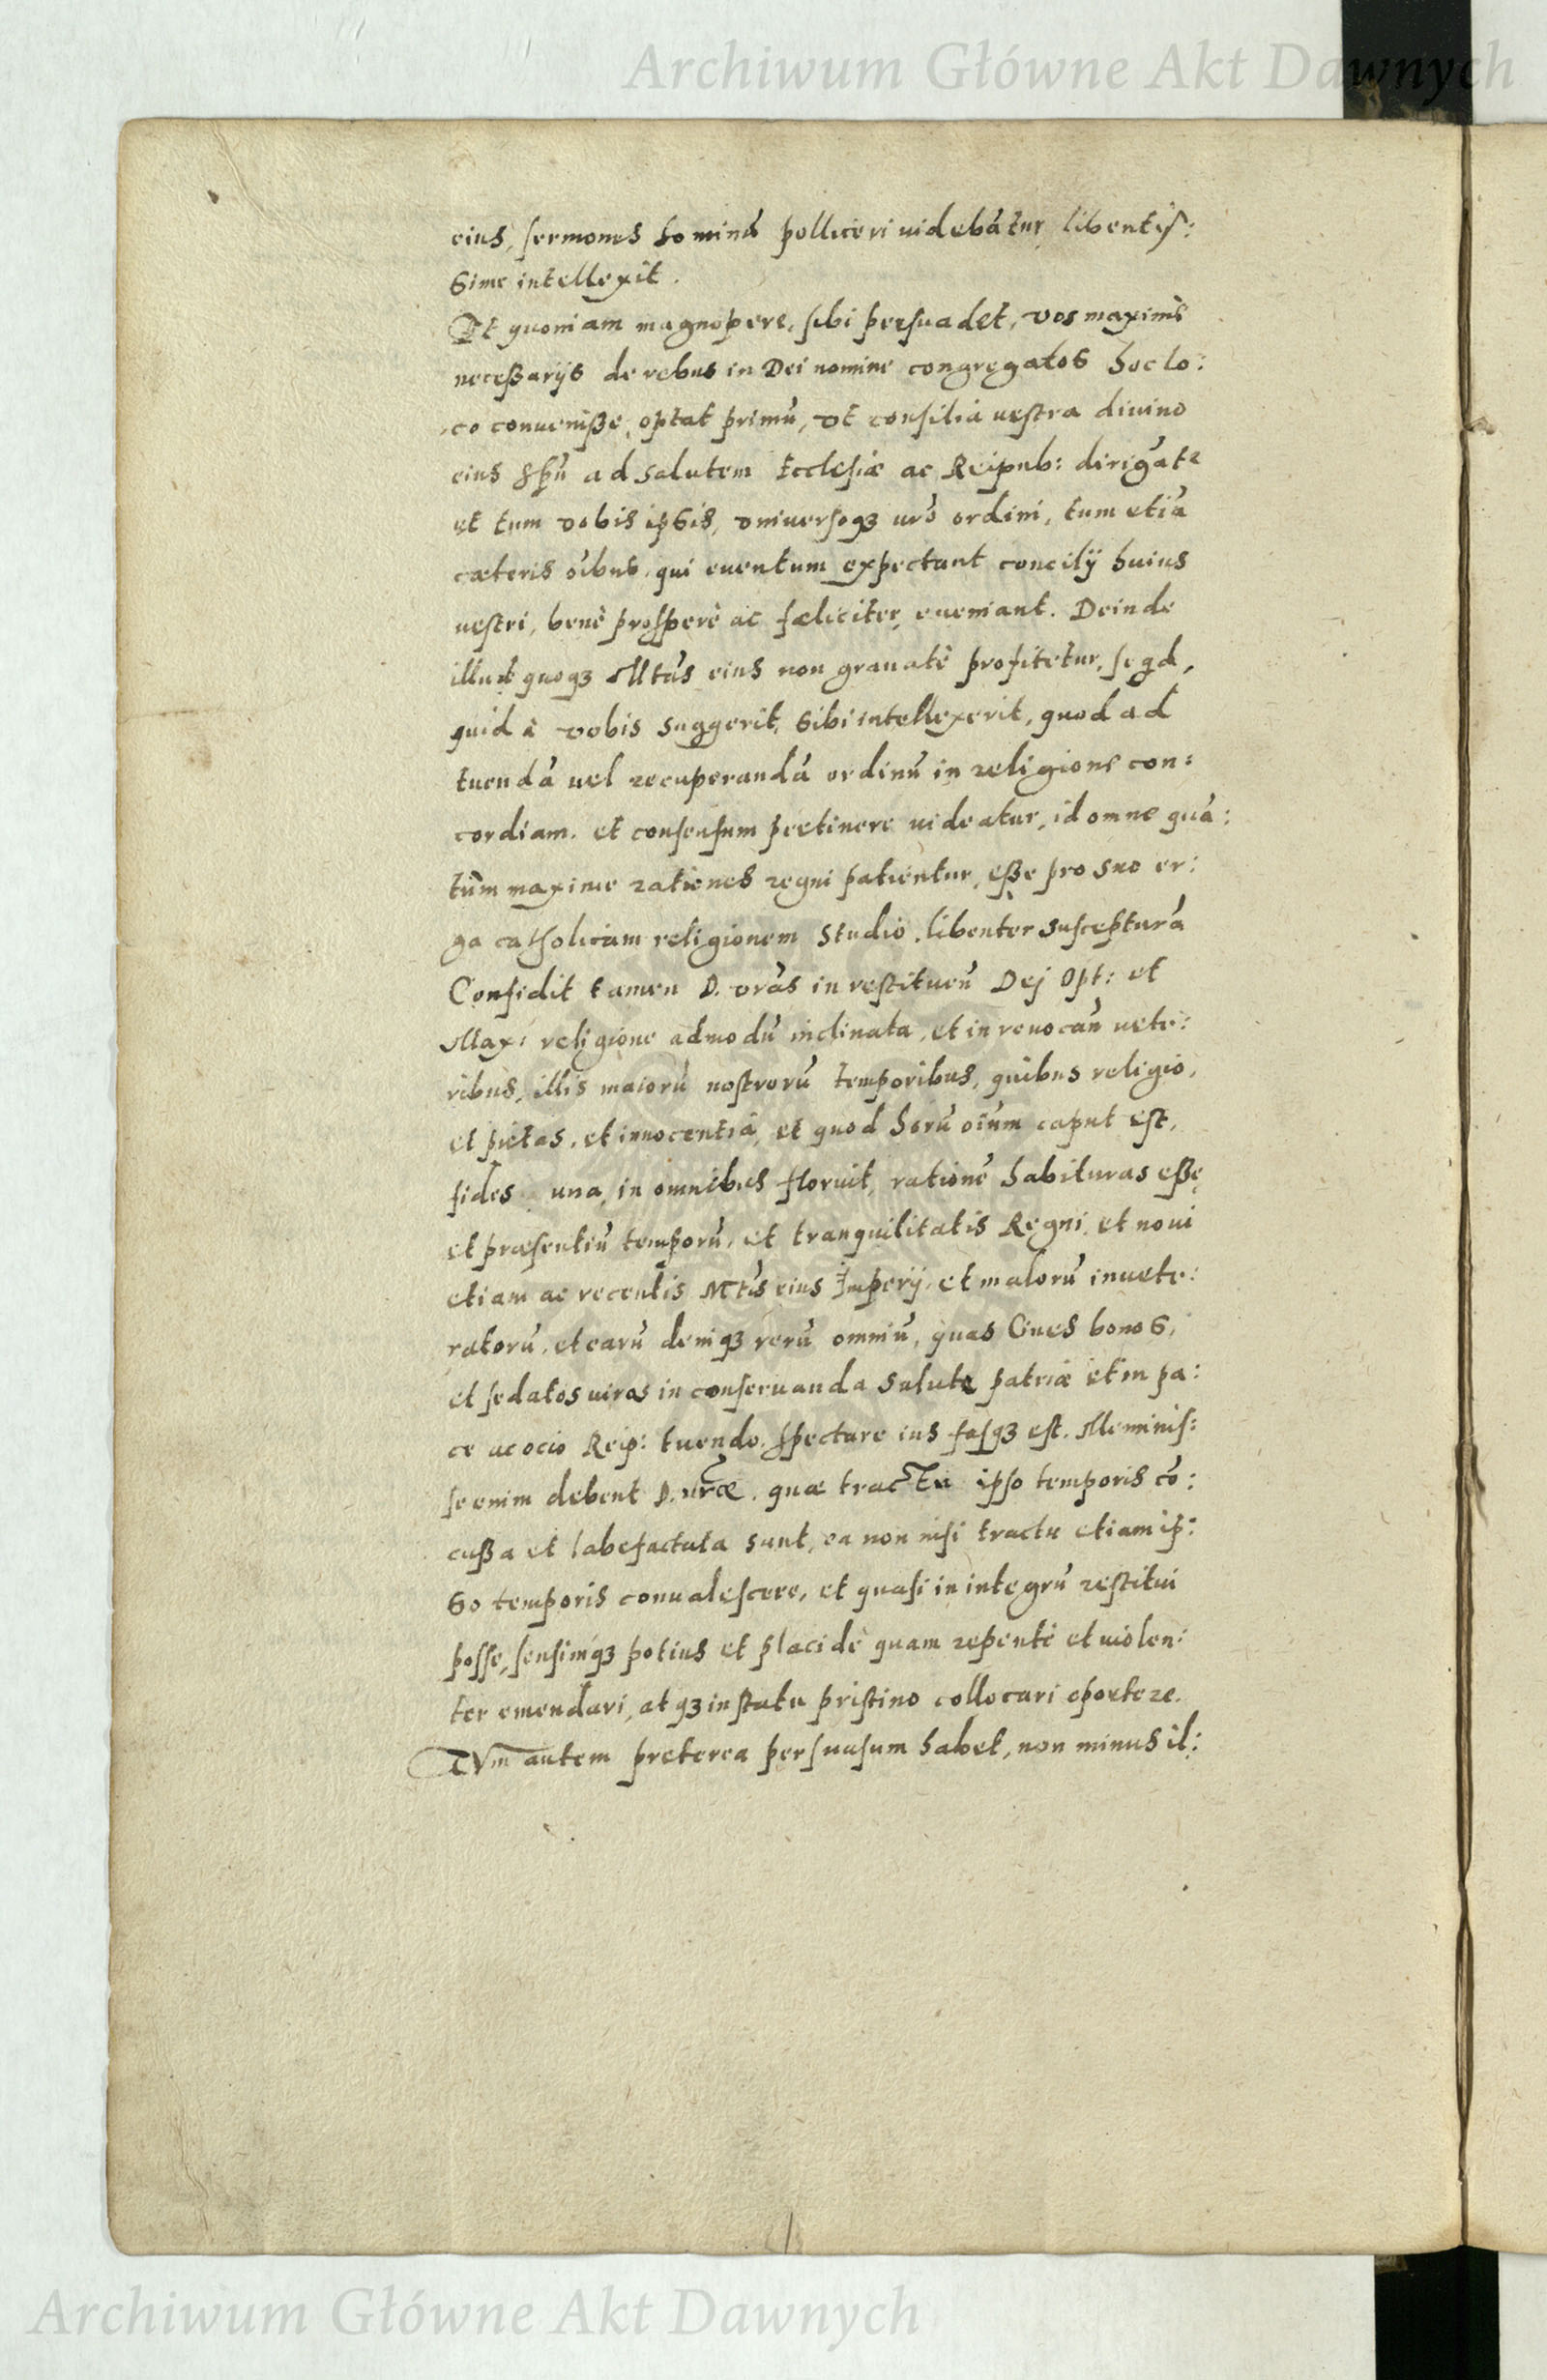 Archiwum Główne Akt Dawnych
eius, sermones hominū polliceri uidebātur, libentiſ:
sime intellexit.
Et quoniam magnopere, sibi persuadet, vos maximè
neceßarijs de rebus in Dei nomine congregatos hoc lo:
co conueniße, optat primū, vt consilia uestra diuino
eius Spū ad salutem Ecclesiæ ac Reipub: dirigāt2
et tum vobis ipsis, vniuersoqꝫ uro ordini, tum etiā
cæteris oibus, qui euentum expectant concilij huius
uestri, benè prosperè ac fæliciter, eueniant. Deinde
illud quoqꝫ Mtas eius non grauatè profitetur, se qd,
quid à vobis suggerit, sibi intellexerit, quod ad
tuendā uel recuperandā ordinū in religione con:
cordiam. et consensum pertinere uideatur, id omne quā:
tùm maxime rationes regni patientur, eße pro suo er:
ga catholicam religionem studio, libenter suscepturā
Confidit tamen D. vras in restituen̄ Dej Opt: et
Max: religione admodū inclinata, et in reuocan̄ uete:
ribus, illis maiorū nostrorū temporibus, quibus religio,
et pietas, et innocentia, et quod horū oium caput est,
fides una, in omnibus floruit, rationē habituras eße
et præsentiū temporū, et tranquilitatis Regni, et noui
etiam ac recentis Mtis eius Imperij, et malorū inuete:
ratorū, et earū deniqꝫ rerū omniū, quas Ciues bonos,
et sedatos uiros in conseruanda salute patriæ et in pa:
ce ac ocio Reip: tuendo, spectare ius fasqꝫ est. Meminis:
se enim debent D. uræ. quæ tractu ipso temporis cō:
cußa et labefactata sunt, ea non nisi tractu etiam ip:
so temporis conualescere, et quasi in integrū restitui
posse, sensimqꝫ potius et placidè quam repentè et uiolen:
ter emendari, atqꝫ in statu pristino collocari oportere.
TVm autem preterea persuasum habet, non minus il:
Archiwum Główne Akt Dawnych